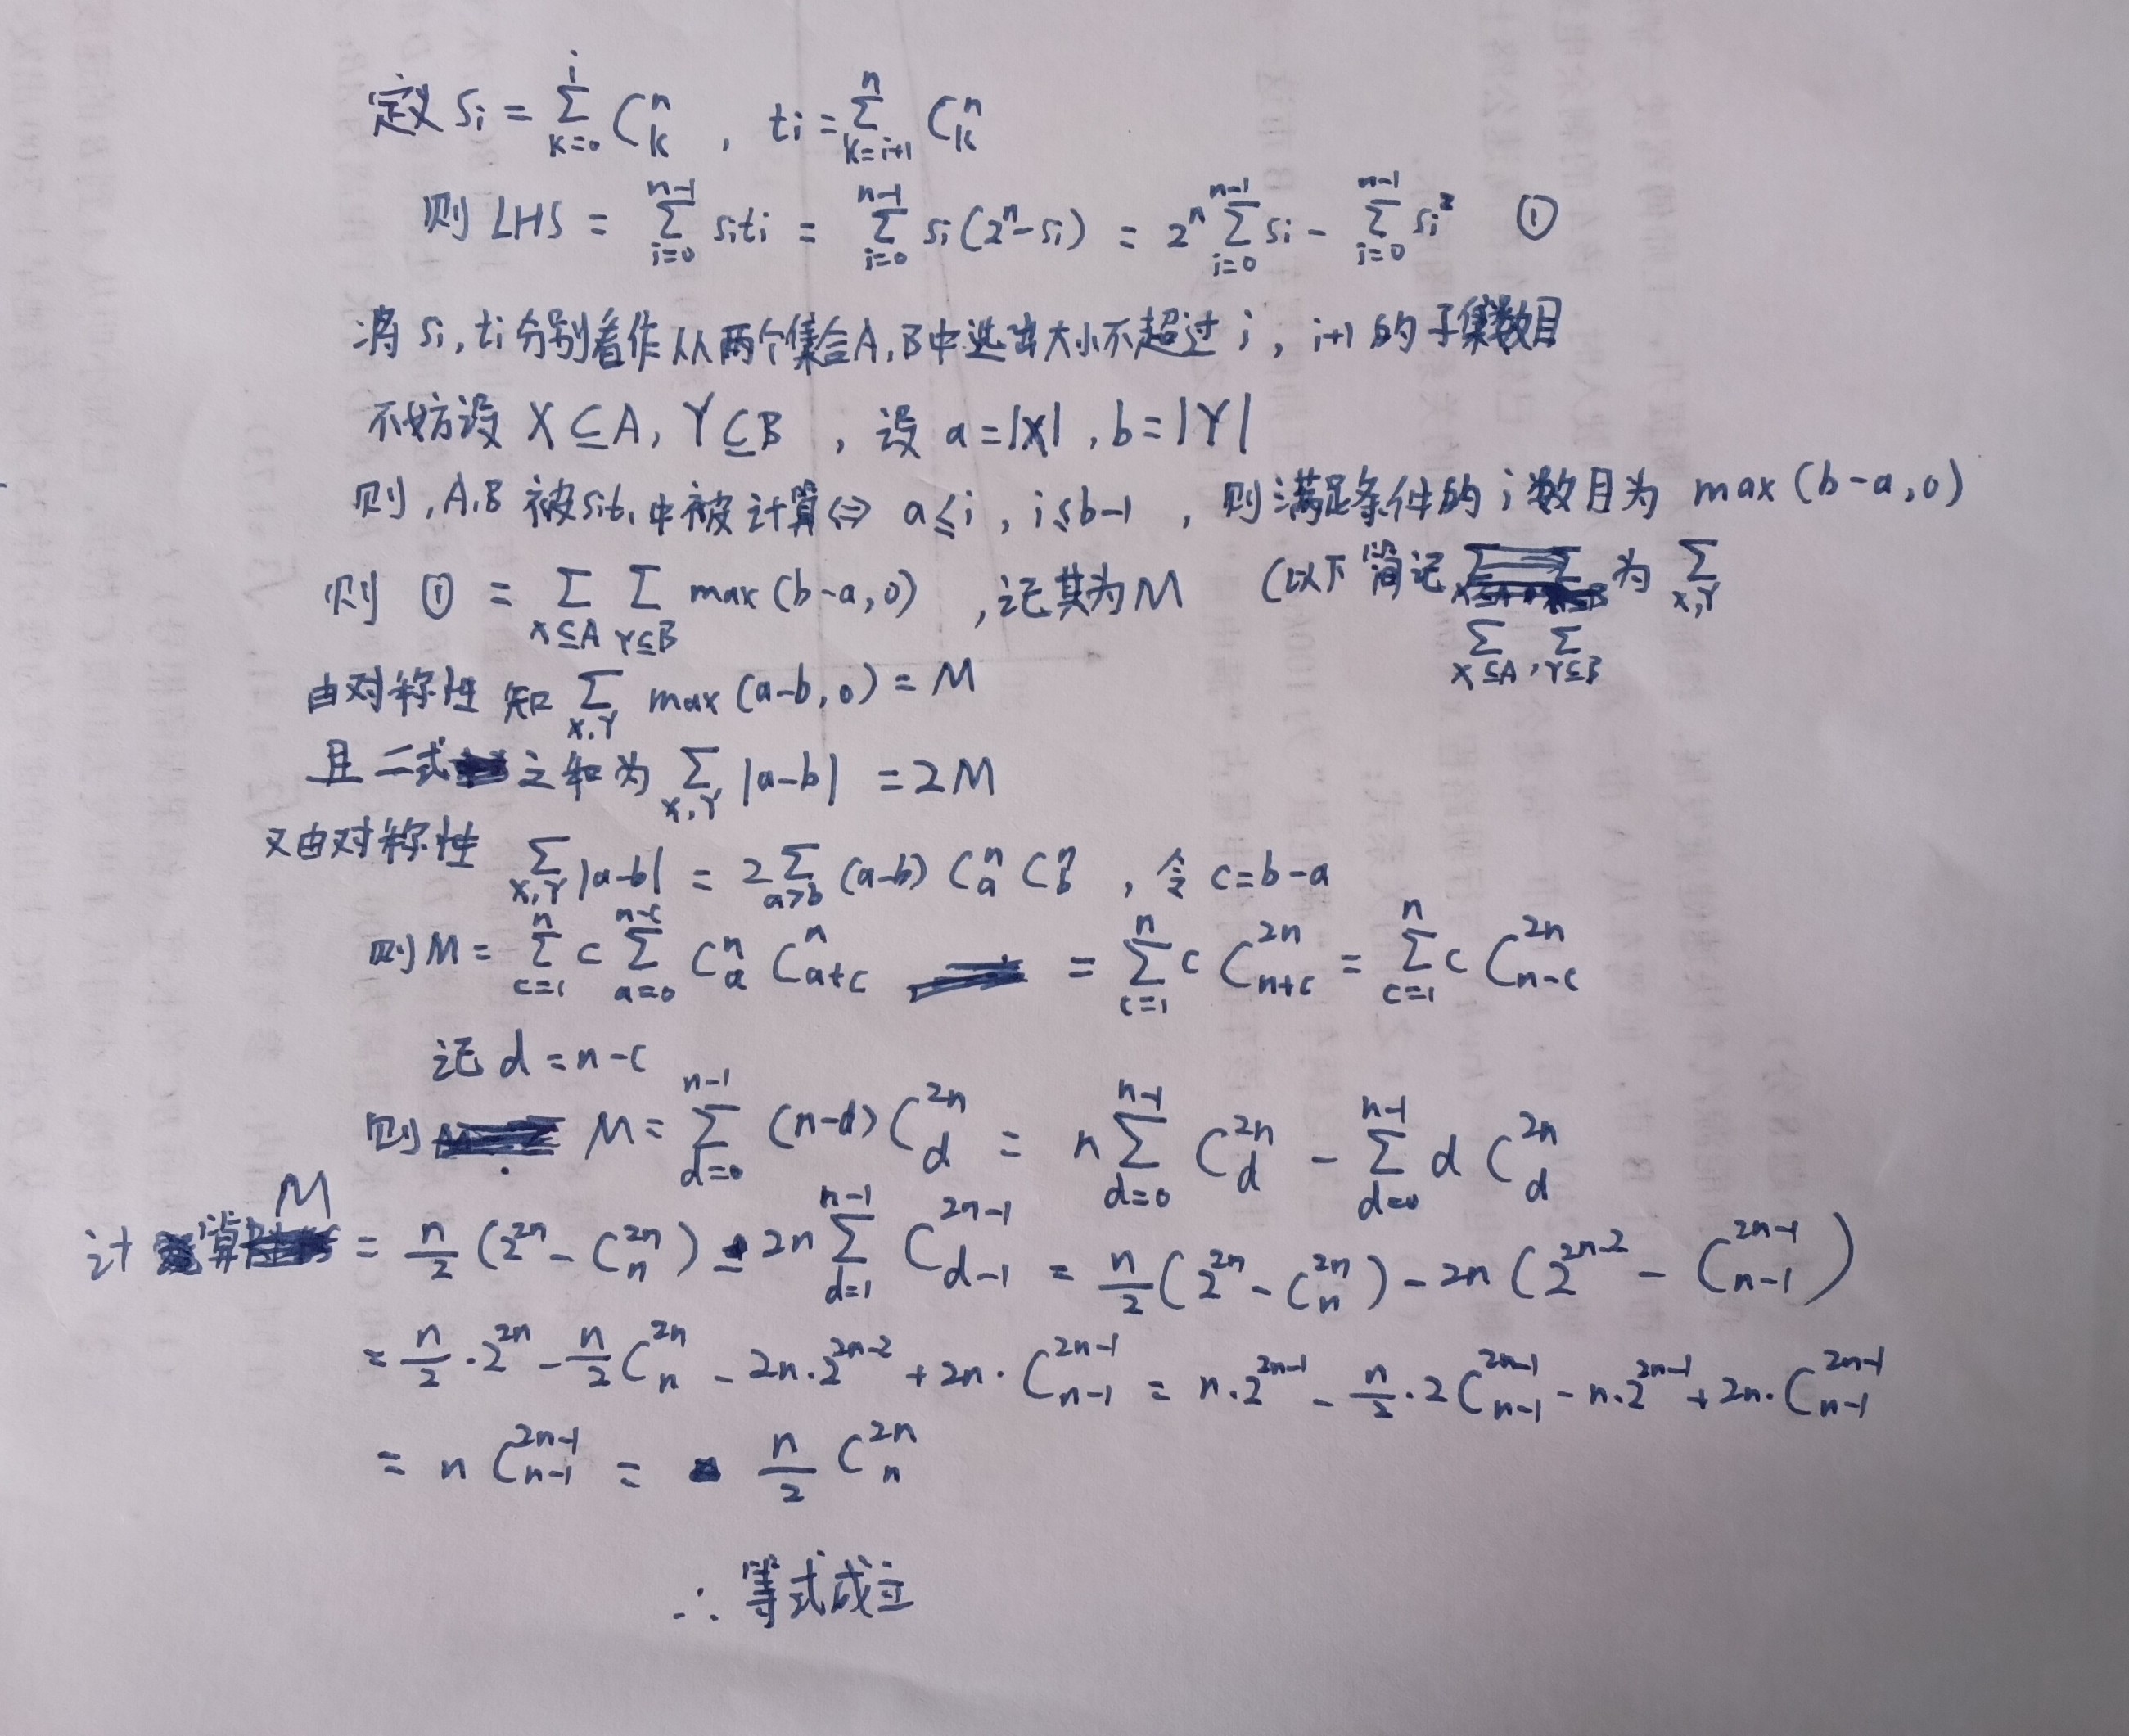 定义 Si = ∑_{k=0}^{i} C_k^n , ti = ∑_{k=i+1}^{n} C_k^n
则 LHS = ∑_{i=0}^{n-1} siti = ∑_{i=0}^{n-1} si(2^n - si) = 2^n ∑_{i=0}^{n-1} si - ∑_{i=0}^{n-1} si^2 ①
将 si, ti 分别看作从两个集合A,B中选出大小不超过 i , i+1 的子集数目
不妨设 X ⊆ A, Y ⊆ B , 设 a = |X| , b = |Y|
则 , A.B 被siti中被计算 ⇔ a ≤ i , i ≤ b-1 , 则满足条件的 i 数目为 max (b-a, 0)
则 ① = ∑_{X⊆A} ∑_{Y⊆B} max (b-a, 0) , 记其为 M (以下简记 ∑_{X⊆A} , ∑_{Y⊆B} 为 ∑_{X,Y}
由对称性 知 ∑_{X,Y} max (a-b, 0) = M
且 二式之和为 ∑_{X,Y} |a-b| = 2M
又由对称性 ∑_{X,Y} |a-b| = 2 ∑_{a>b} (a-b) C_a^n C_b^n , 令 c = b-a
则 M = ∑_{c=1}^{n} c ∑_{a=0}^{n-c} C_a^n C_{a+c}^n = ∑_{c=1}^{n} c C_{n+c}^{2n} = ∑_{c=1}^{n} c C_{n-c}^{2n}
记 d = n-c
则 M = ∑_{d=0}^{n-1} (n-d) C_d^{2n} = n ∑_{d=0}^{n-1} C_d^{2n} - ∑_{d=0}^{n-1} d C_d^{2n}
计算 M = n/2 (2^{2n} - C_n^{2n}) - 2n ∑_{d=1}^{n-1} C_{d-1}^{2n-1} = n/2 (2^{2n} - C_n^{2n}) - 2n (2^{2n-2} - C_{n-1}^{2n-1})
= n/2 · 2^{2n} - n/2 C_n^{2n} - 2n · 2^{2n-2} + 2n · C_{n-1}^{2n-1} = n · 2^{2n-1} - n/2 · 2 C_{n-1}^{2n-1} - n · 2^{2n-1} + 2n · C_{n-1}^{2n-1}
= n C_{n-1}^{2n-1} = n/2 C_n^{2n}
∴ 等式成立